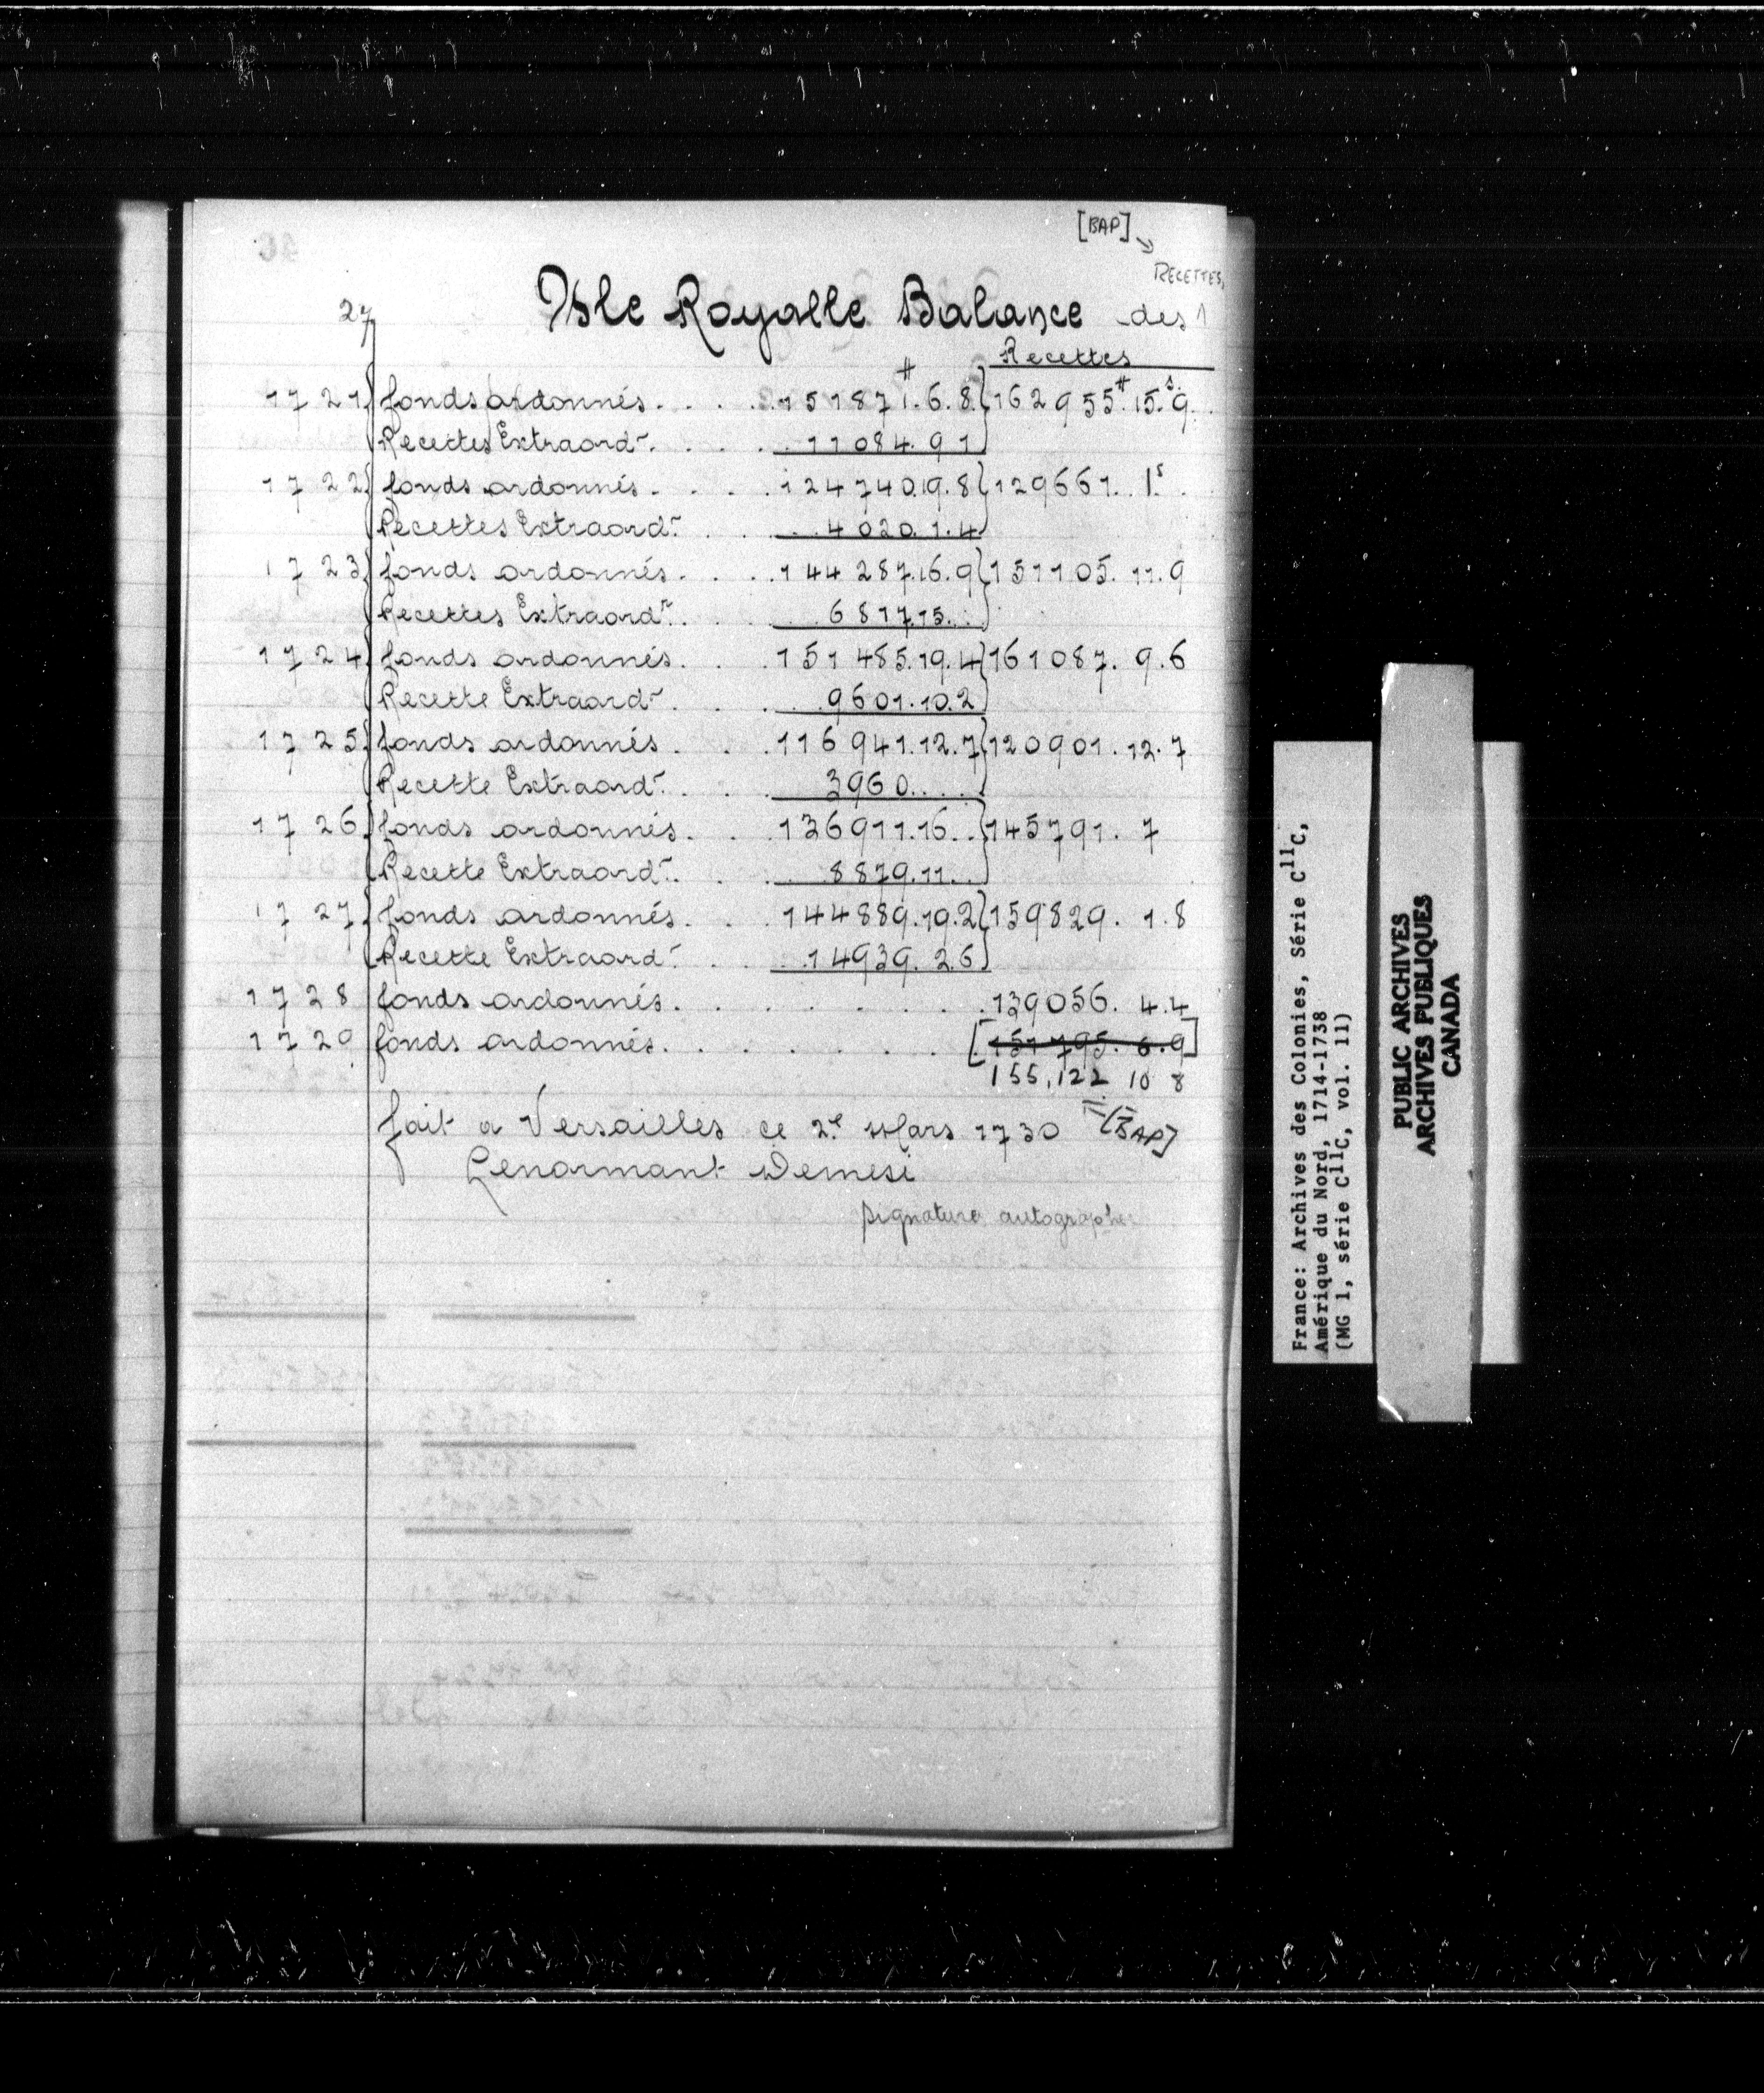 [BAP]
RECETTES,
27
Isle Royalle Balance des
Recettes
1721 fonds ordonnés. . . . . 151871#.6.8. } 162955#.15s.9.
Recettes Extraordr. . . . . 11084. 9 1
1722 fonds ordonnés. . . . . 124740.19.8 } 129661. 1s.
Recettes Extraordr. . . . . 4020.1.4
1723 fonds ordonnés. . . . . 144287.16.9 } 151105. 11.9
Recettes Extraordr. . . . . 6817.15. . .
1724 fonds ordonnés. . . . 151485.19.4 } 161087. 9.6
Recette Extraordr. . . . . 9601.10.2
1725 fonds ordonnés. . . . 116941.12.7 } 120901. 12.7
Recette Extraordr. . . . 3960. . . . .
1726 fonds ordonnés. . . . 136911.16. . } 145791. 7
Recette Extraordr. . . . . 8879.11. . .
1727 fonds ordonnés. . . . 144889.19.2 } 159829. 1.8
Recette Extraordr. . . . 14939. 2.6
1728 fonds ordonnés. . . . . . . . . 139056. 4.4
1729 fonds ordonnés. . . . . . . . [151795. 6.9]
155,122 10 8
fait a Versailles ce 2e Mars 1730 [BAP]
Lenormant Demesi
signature autographe
France: Archives des Colonies, Série C11C,
Amérique du Nord, 1714-1738
(MG 1, série C11C, vol. 11)
PUBLIC ARCHIVES
ARCHIVES PUBLIQUES
CANADA